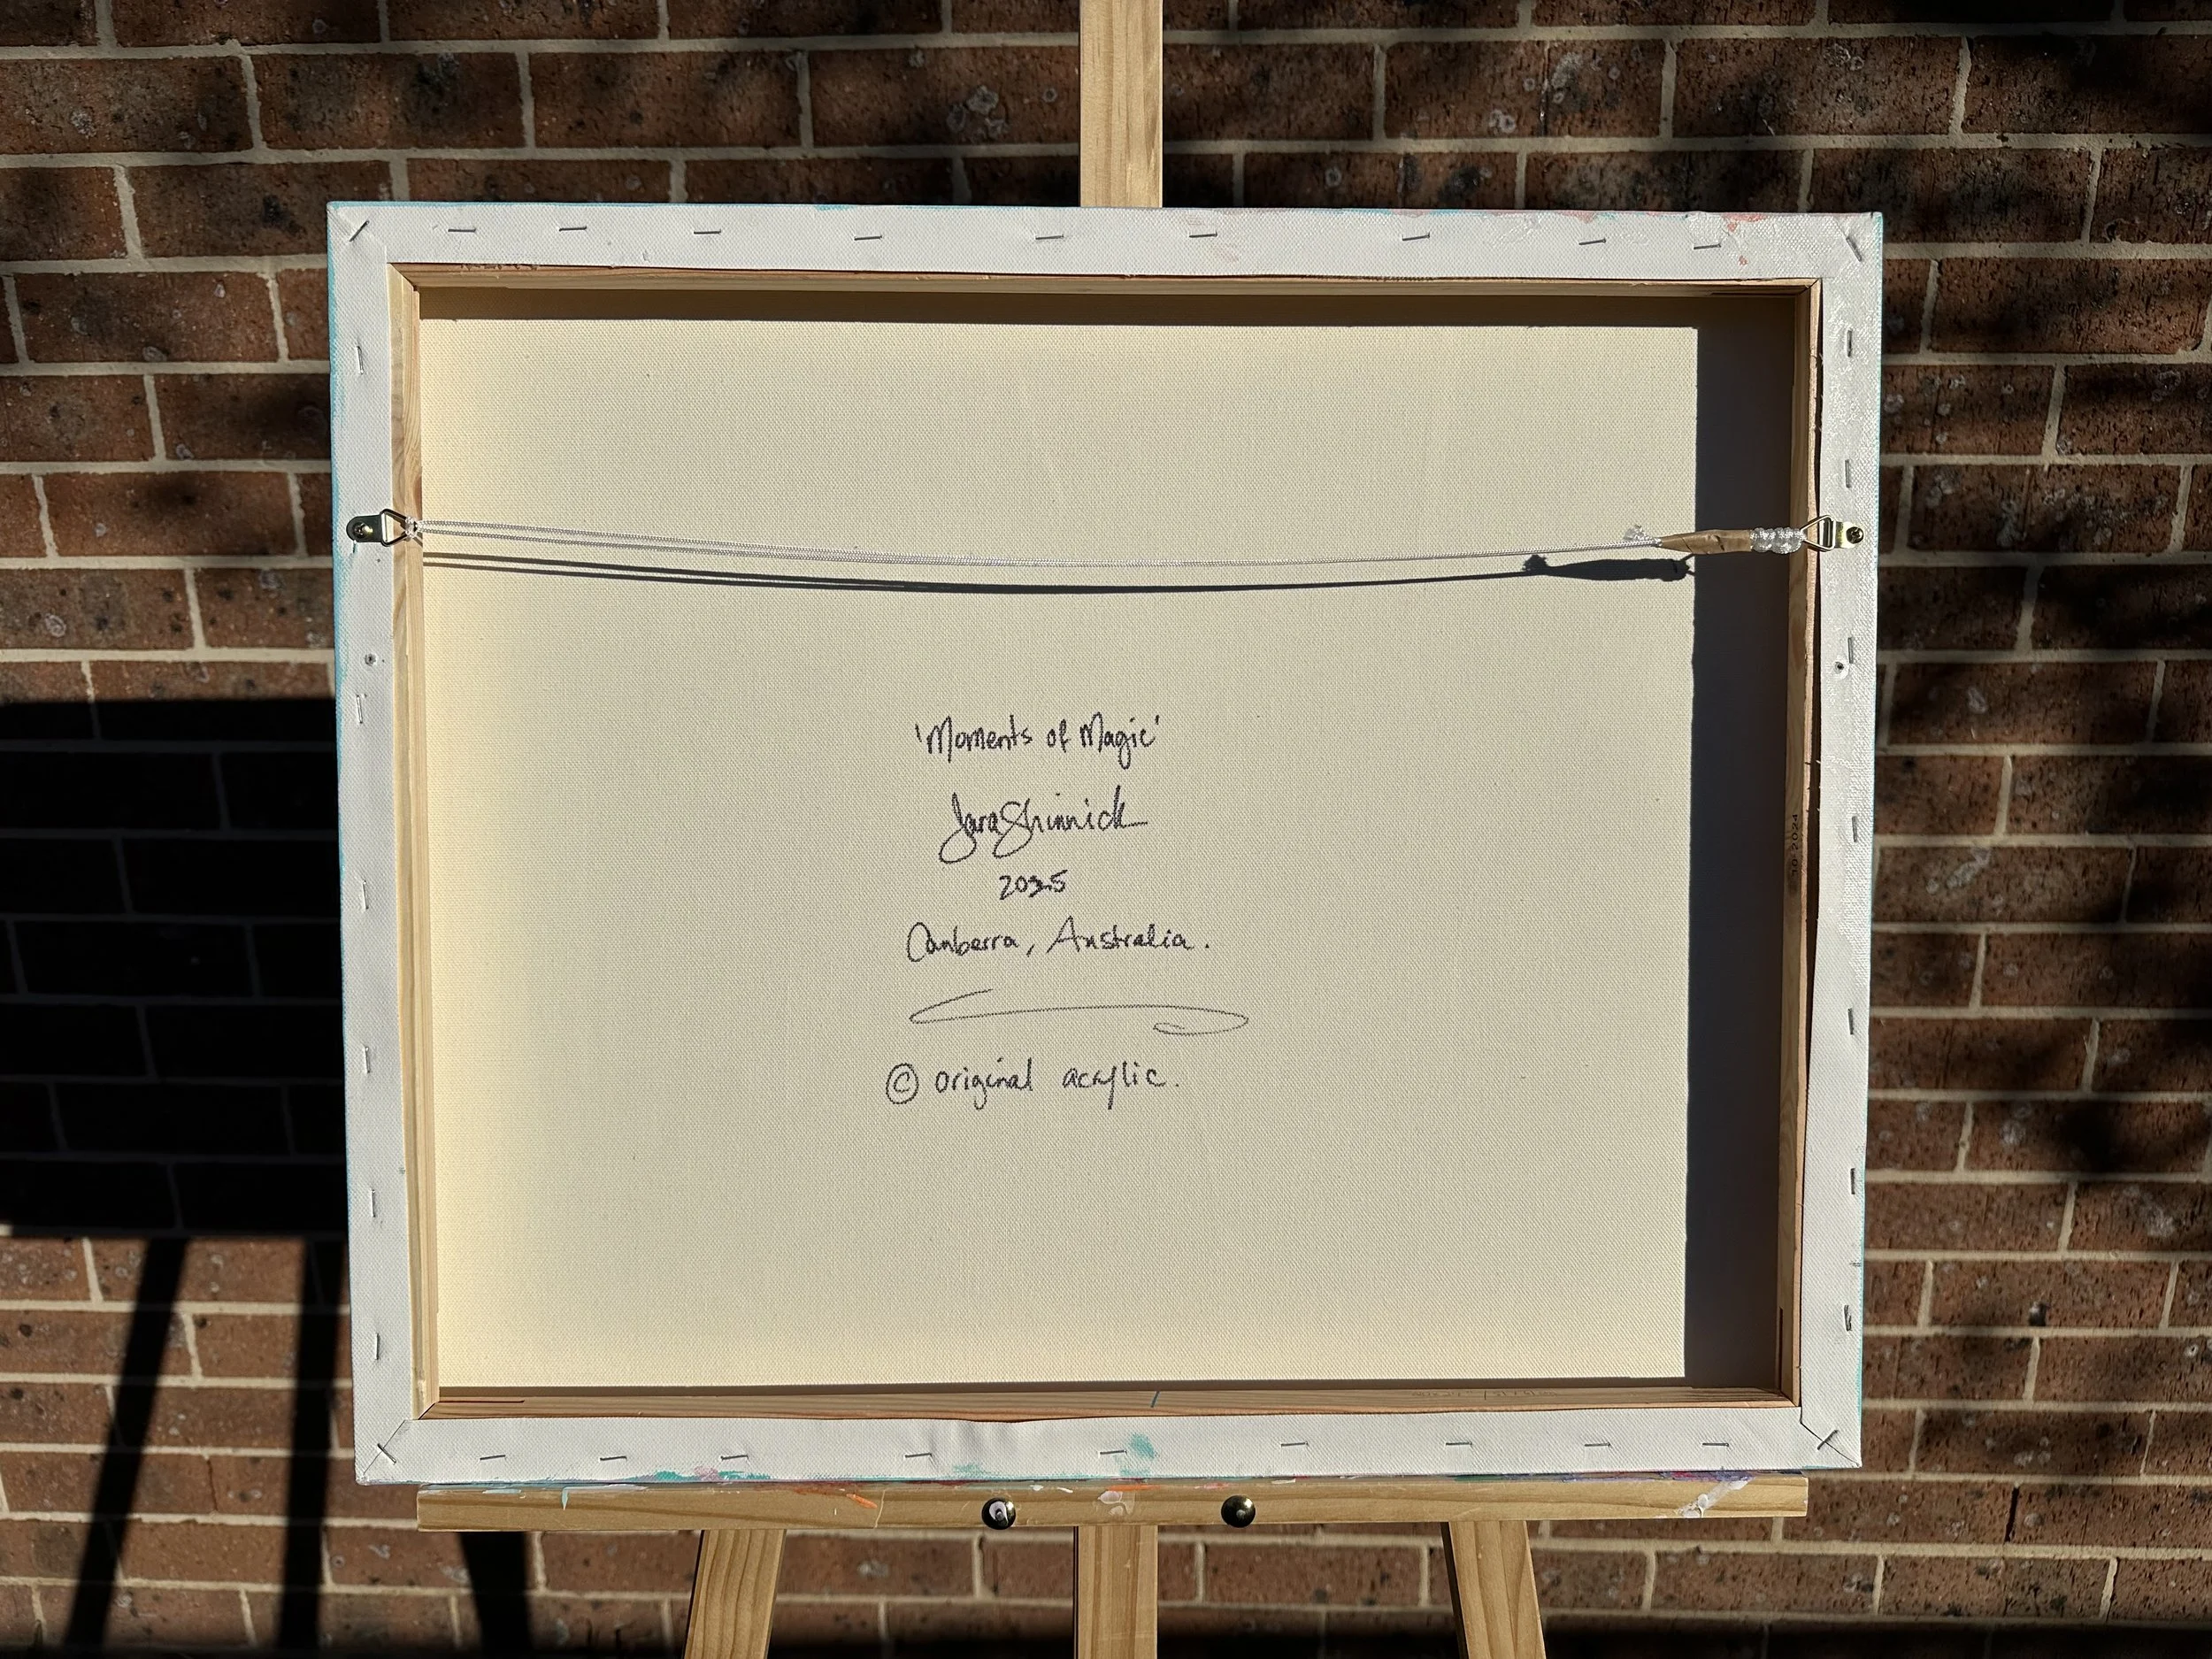 'Moments of Magic'
Jara Shinnick
2025
Canberra, Australia.
© original acrylic.